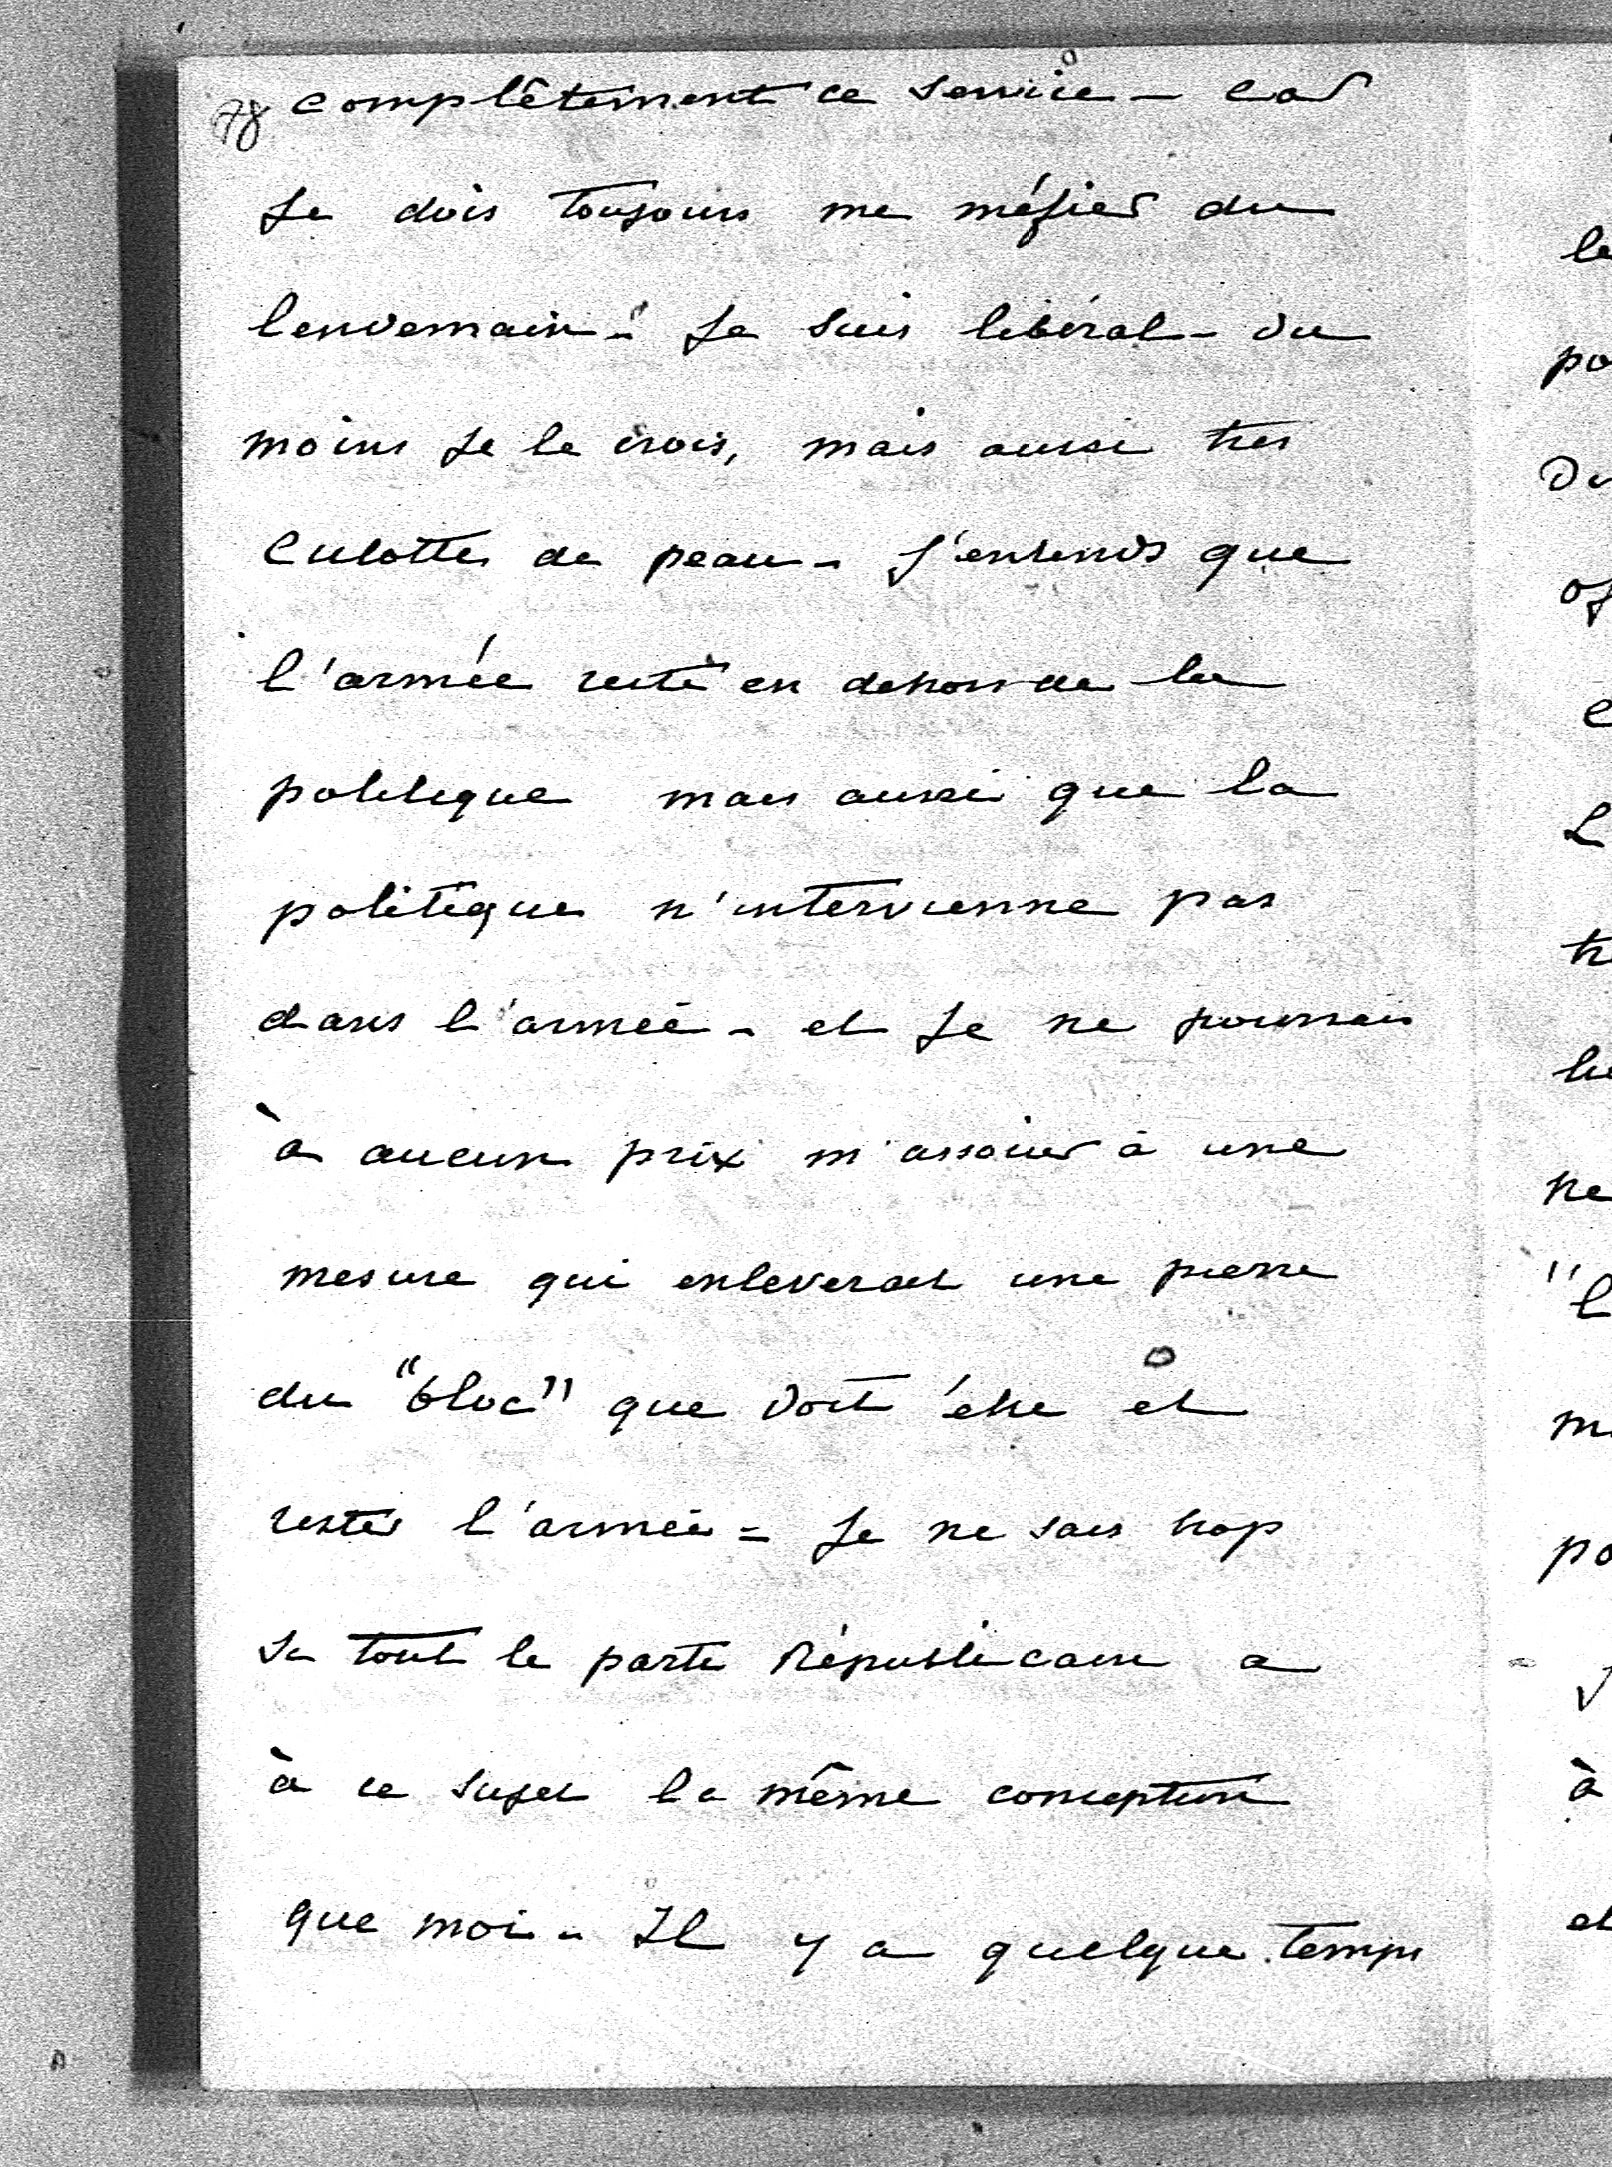 78 complêtement ce service - car
je dois toujours me méfier du
lendemain - Je suis libéral - du
moins je le crois, mais aussi très
culotte de peau - J'entends que
l'armée reste en dehors de la
politique mais aussi que la
politique n'intervienne pas
dans l'armée - et je ne pourrais
à aucun prix m'associer à une
mesure qui enleverait une pierre
du "bloc" que doit être et
rester l'armée = Je ne sais trop
si tout le parti Républicain a
à ce sujet la même conception
que moi - Il y a quelque temps